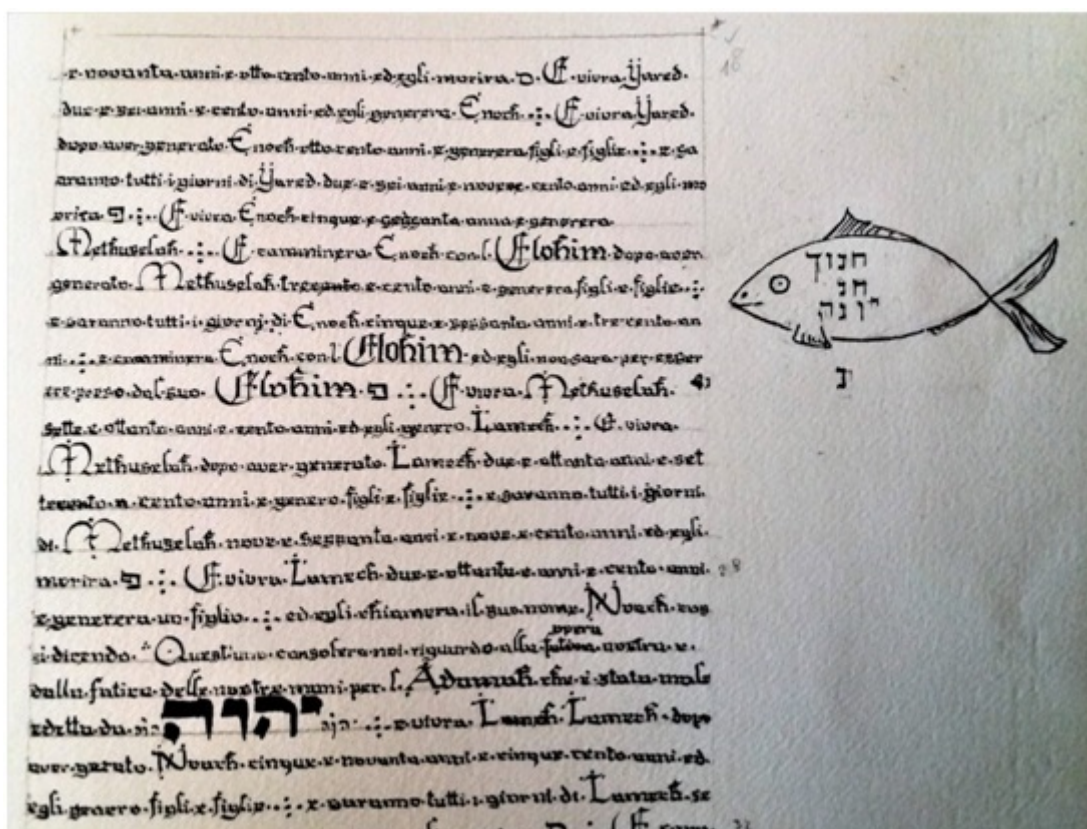 ·e·novanta·anni·e·otto·cento·anni·ed·egli·morira·פ·E·vivra·Yared·
due·e·sei·anni·e·cento·anni·ed·egli·generera·Enoch·:·E·vivra·Yared·
dopo·aver·generato·Enoch·otto·cento·anni·e·generera·figli·e·figlie·:·e·sa
aranno·tutti·i·giorni·di·Yared·due·e·sei·anni·e·nove·cento·anni·ed·egli·mo
rira·פ·:·E·vivra·Enoch·cinque·e·sessanta·anna·e·generera
Methuselah·:·E·camminera·Enoch·con·l·Elohim·dopo·aver
generato·Methuselah·trecento·e·cento·anni·e·generera·figli·e·figlie·:·
e·saranno·tutti·i·giorni·di·Enoch·cinque·e·sessanta·anni·e·tre·cento·an
ni·:·e·camminera·Enoch·con·l·Elohim·ed·egli·non·sara·per·esser
ere·preso·dal·suo·Elohim·פ·:·E·vivra·Methuselah·
sette·e·ottanta·anni·e·cento·anni·ed·egli·genero·Lamech·:·E·vivra·
Methuselah·dopo·aver·generato·Lamech·due·e·ottanta·anni·e·set
tecento·e·cento·anni·e·genero·figli·e·figlie·:·e·saranno·tutti·i·giorni·
di·Methuselah·nove·e·sessanta·anni·e·nove·e·cento·anni·ed·egli·
morira·פ·:·E·vivra·Lamech·due·e·ottanta·e·anni·e·cento·anni·
e·generera·un·figlio·:·ed·egli·chiamera·il·suo·nome·Noach·cos
i·dicendo·"Questi·consolera·noi·riguardo·alla·opera·nostra·e·
dalla·fatica·delle·nostre·mani·per·l·Adamah·che·e·stata·male
edetta·da·יהוה·:·e·vivra·Lamech·Lamech·dopo
aver·gerato·Noach·cinque·e·novanta·anni·e·cinque·cento·anni·ed·
egli·genero·figli·e·figlie·:·e·saranno·tutti·i·giorni·di·Lamech·se
18
חנוך
חנ
יונה
נ